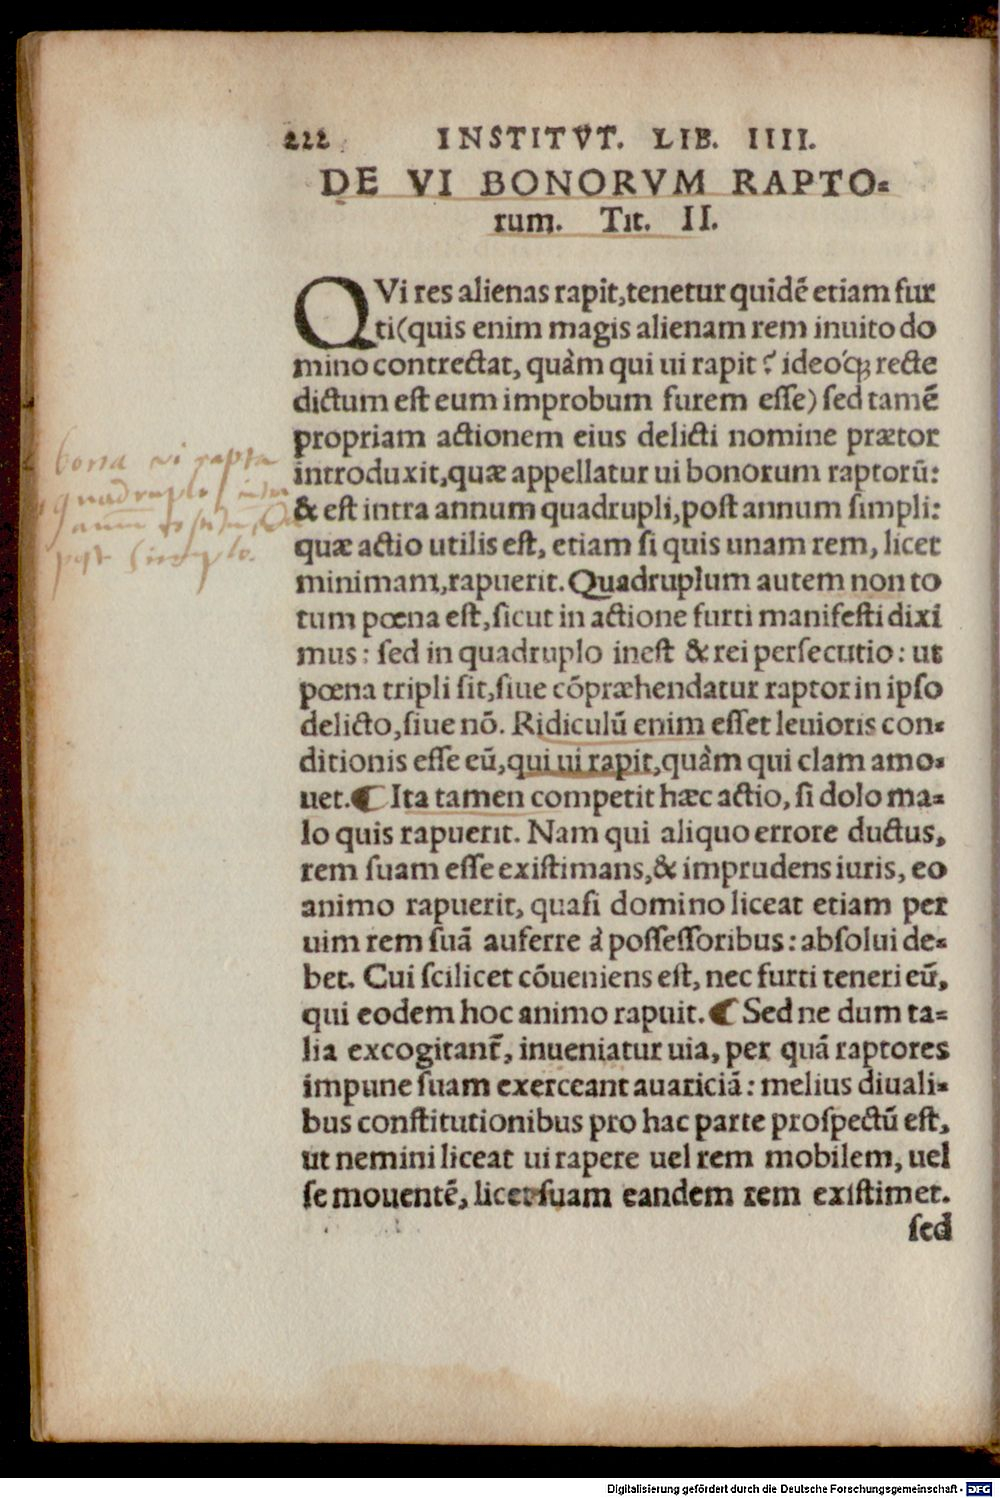 222 INSTITVT. LIB. IIII.
DE VI BONORVM RAPTO⸗
rum. Tit. II.
QVi res alienas rapit,tenetur quidẽ etiam fur
ti(quis enim magis alienam rem inuito do
mino contrectat, quàm qui ui rapit? ideóq́; recte
dictum est eum improbum furem esse) sed tamẽ
propriam actionem eius delicti nomine prætor
introduxit,quæ appellatur ui bonorum raptorũ:
& est intra annum quadrupli,post annum simpli:
quæ actio utilis est, etiam si quis unam rem, licet
minimam,rapuerit. Quadruplum autem non to
tum pœna est,sicut in actione furti manifesti dixi
mus: sed in quadruplo inest & rei persecutio: ut
pœna tripli sit,siue cõpræhendatur raptor in ipso
delicto,siue nõ. Ridiculũ enim esset leuioris con⸗
ditionis esse eũ,qui ui rapit,quàm qui clam amo⸗
uet.¶ Ita tamen competit hæc actio, si dolo ma⸗
lo quis rapuerit. Nam qui aliquo errore ductus,
rem suam esse existimans,& imprudens iuris, eo
animo rapuerit, quasi domino liceat etiam per
uim rem suã auferre à possessoribus: absolui de⸗
bet. Cui scilicet cõueniens est, nec furti teneri eũ,
qui eodem hoc animo rapuit.¶ Sed ne dum ta⸗
lia excogitant̃, inueniatur uia, per quã raptores
impune suam exerceant auariciã: melius diuali⸗
bus constitutionibus pro hac parte prospectũ est,
ut nemini liceat ui rapere uel rem mobilem, uel
se mouentẽ, licet suam eandem rem existimet.
sed
bona vi rapta
quadruplo
post simplo.
Digitalisierung gefördert durch die Deutsche Forschungsgemeinschaft - DFG